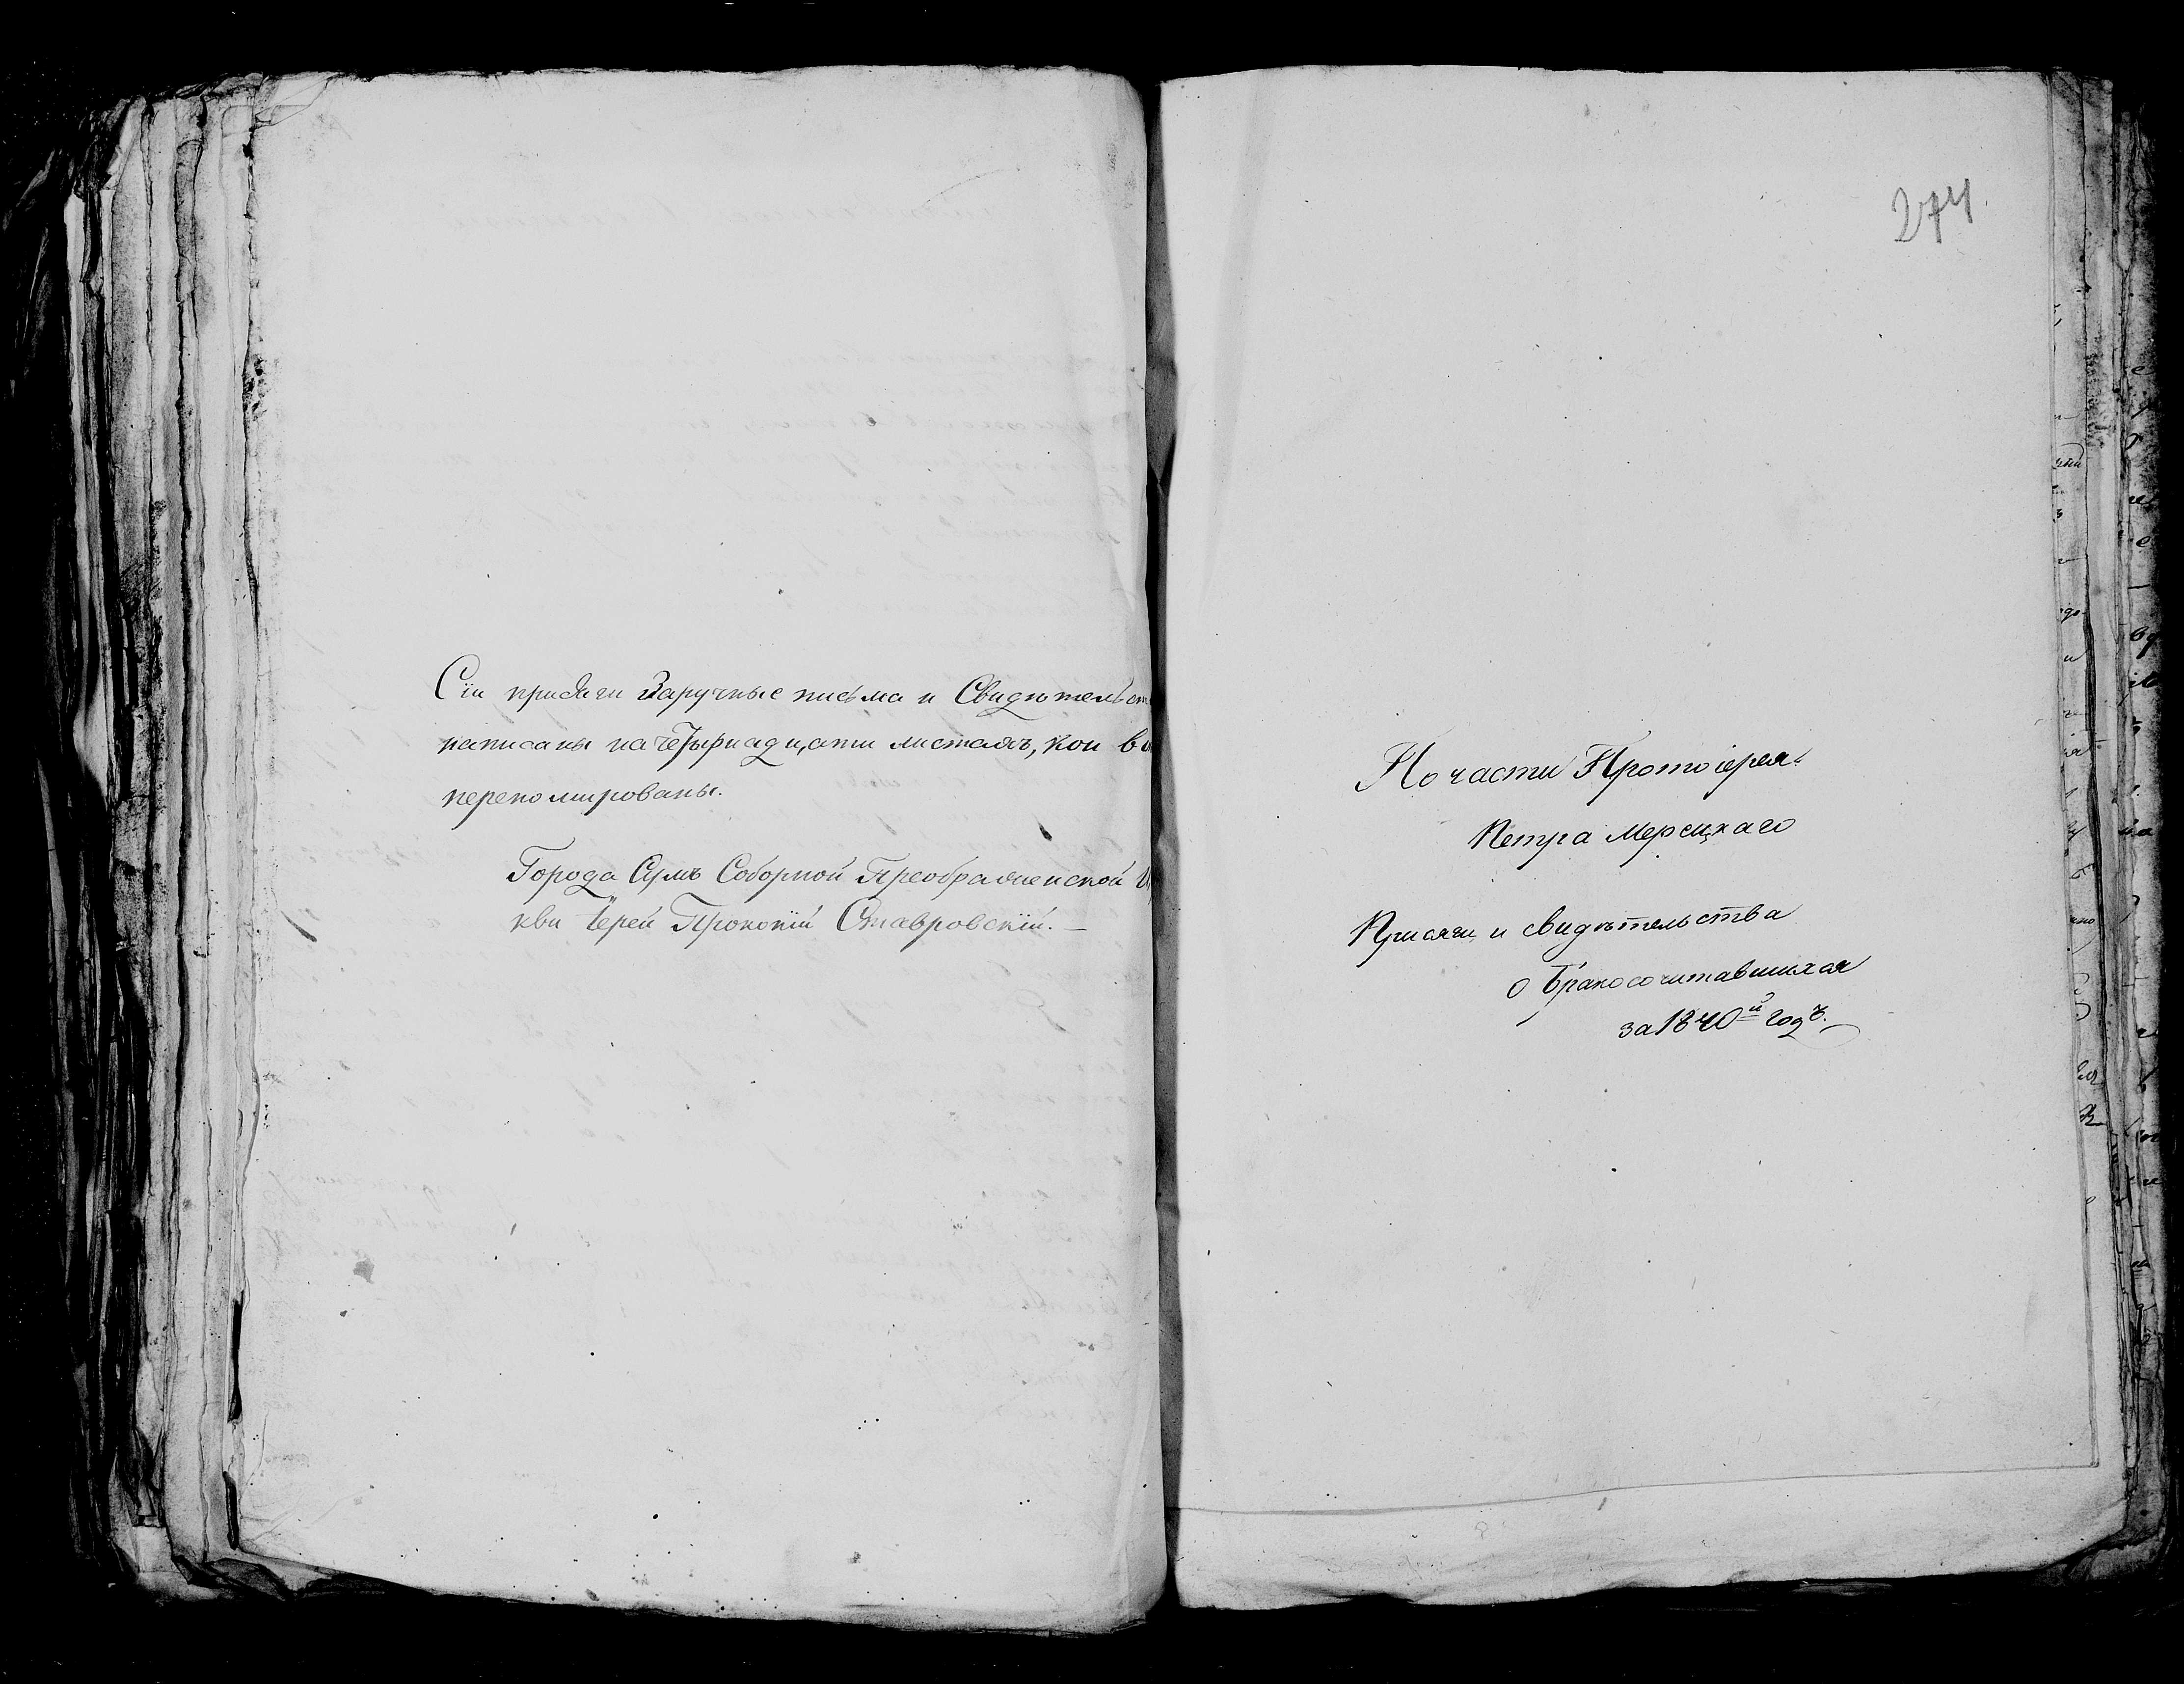 Сіи присяги Заручные письма и Свидѣтельст
написаны на четырнадцати листахъ, кои в
переномированы.
Города Сумъ Соборной Преображенской Ц
кви Іерей Прокопій Ставровскій.
274.
По части Протоіерея
Петра Мерецкаго
Присяги и свидѣтельства
о бракосочитавшихся
за 1840й годъ.